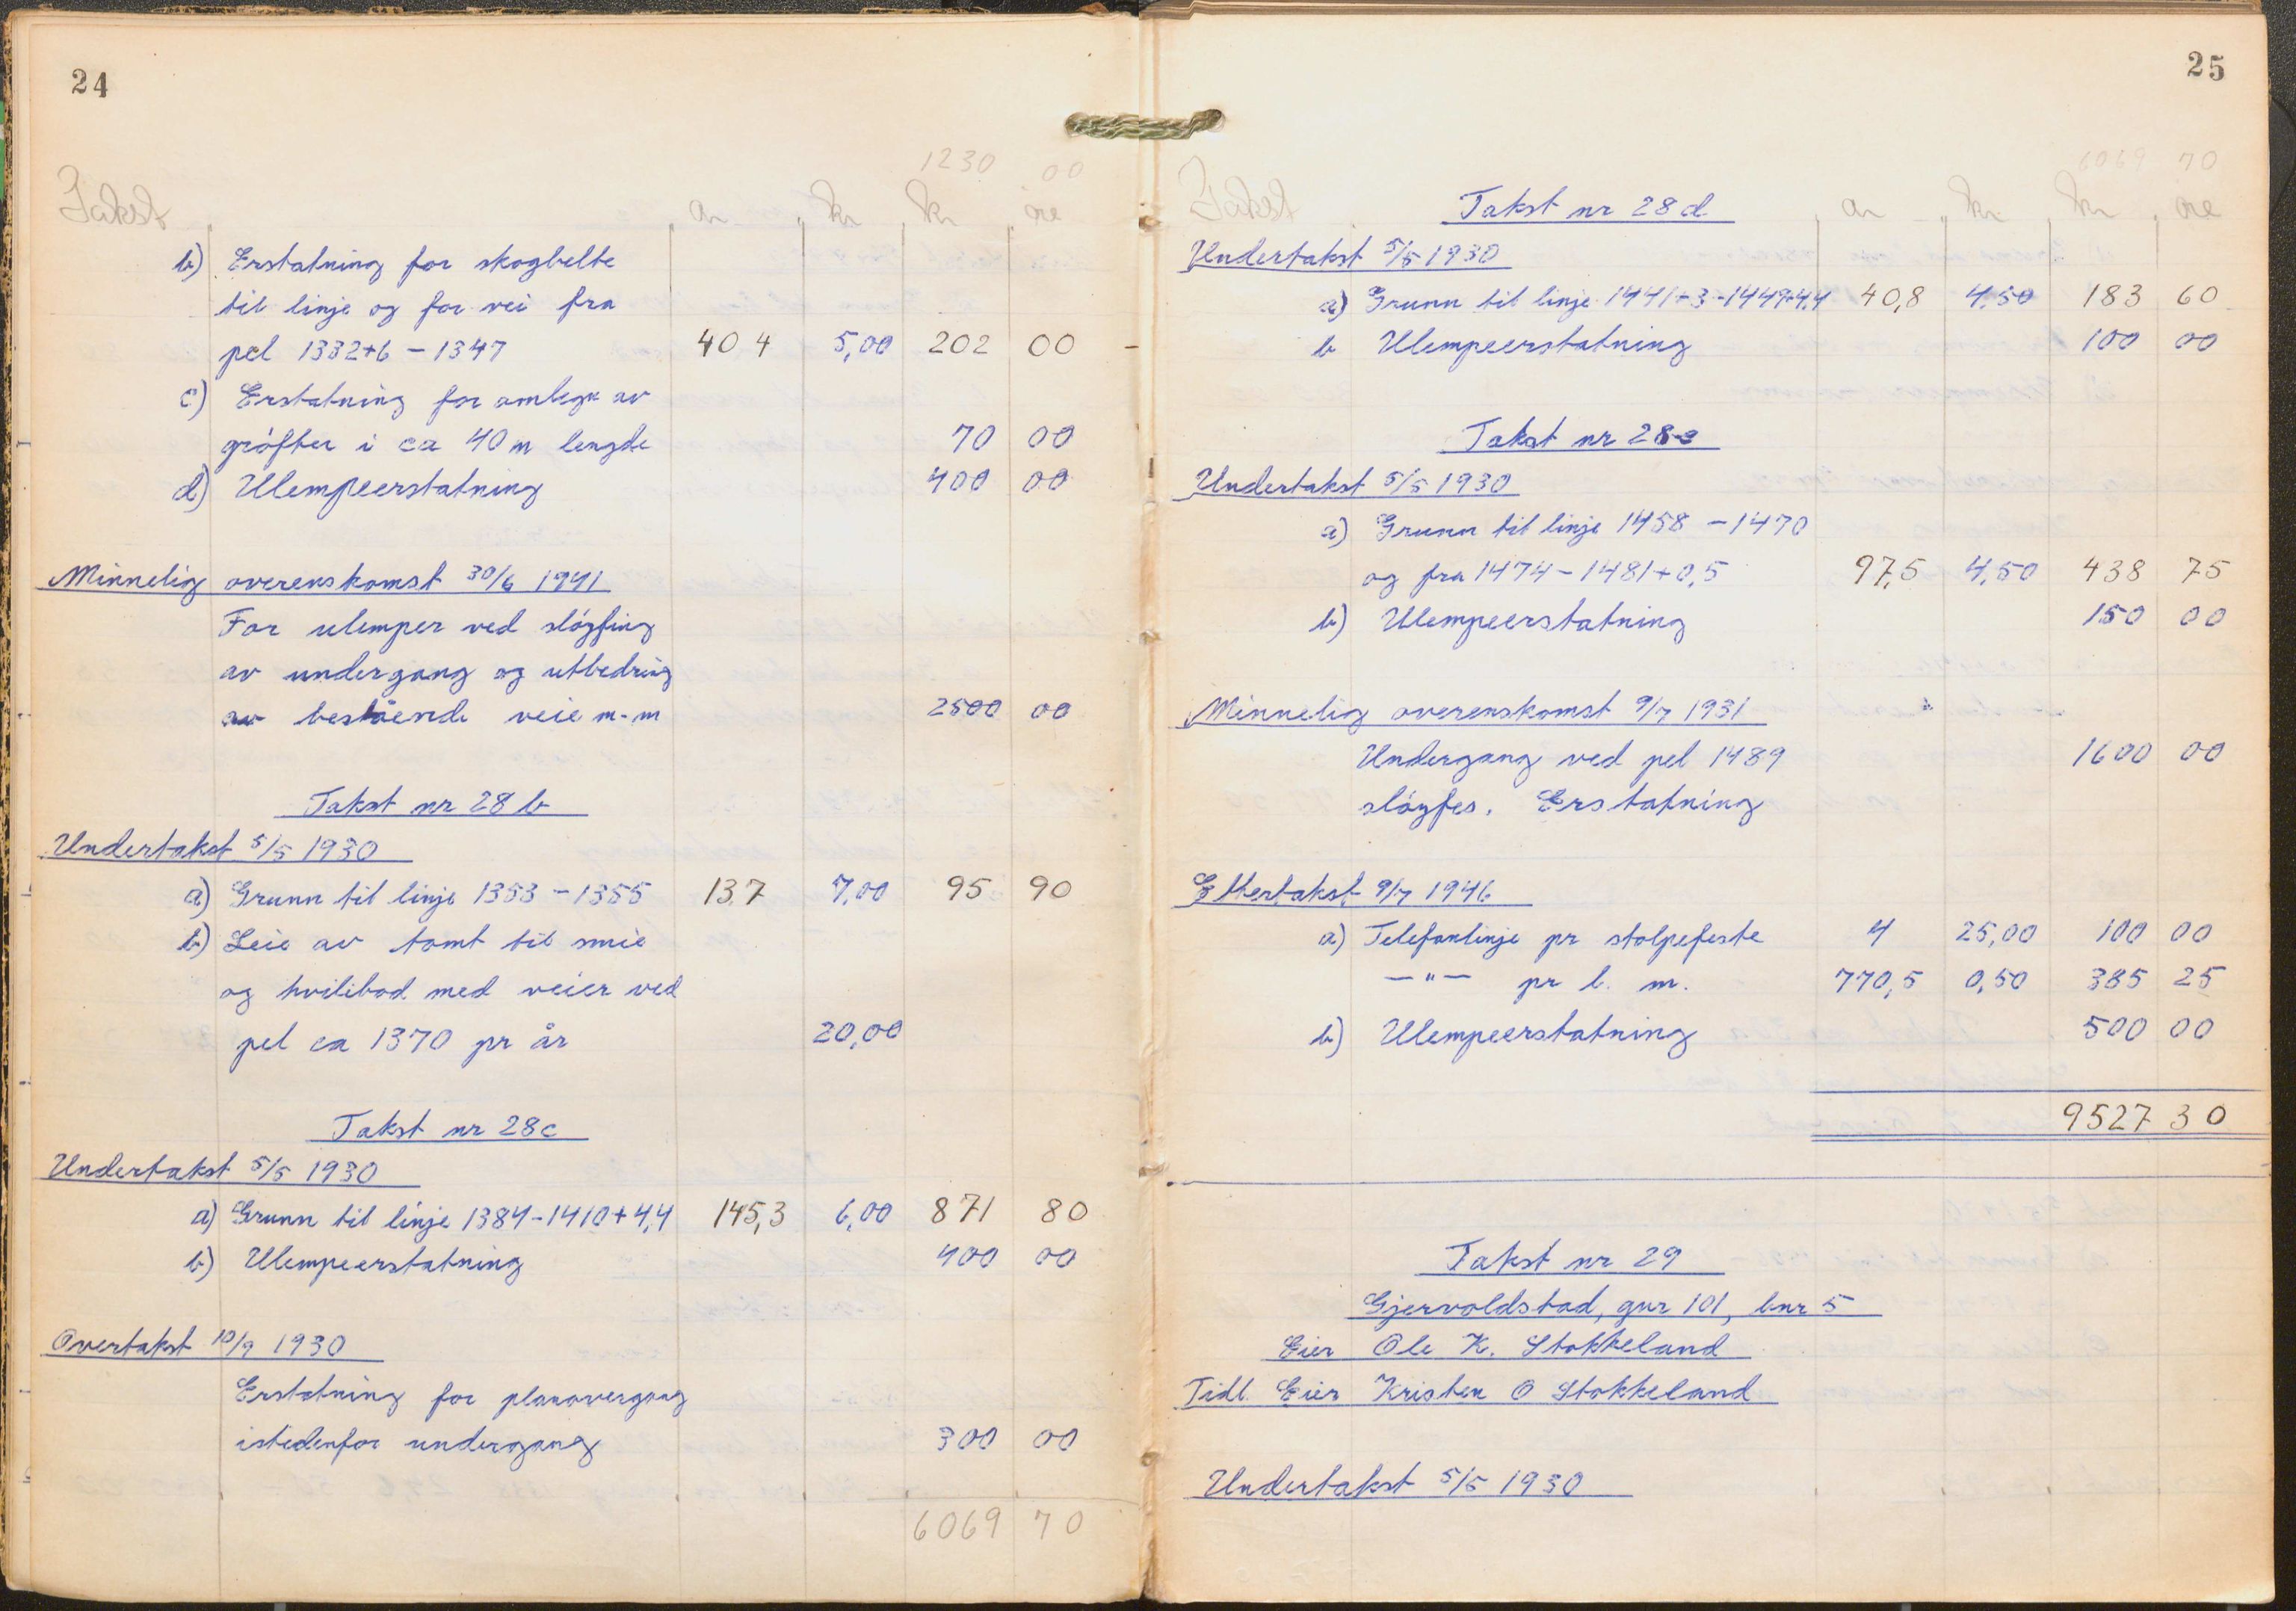 24
1230 00
Takst ar kr kr øre
b) Erstatning for skogbelte
til linje og for vei fra
pel 1332+6 - 1347 40 4 5,00 202 00
c) Erstatning for omlegn av
grófter i ca 40 m lengde 70 00
d) Ulempeerstatning 400 00
Minnelig overenskomst 30/6 1941
For ulemper ved slóyfing
av undergang og utbedring
av bestående veie m.m 2500 00
Takst nr 28 b
Undertakst 5/5 1930
a) Grunn til linje 1353 - 1355 13,7 7,00 95 90
b) Leie av tomt til smie
og hvilebod med veier ved
pel ca 1370 pr år 20,00
Takst nr 28c
Undertakst 5/5 1930
a) Grunn til linje 1384-1410+4,4 145,3 6,00 871 80
b) Ulempeerstatning 400 00
Overtakst 10/9 1930
Erstatning for planovergang
istedenfor undergang 300 00
6069 70
25
6069 70
Takst ar kr kr øre
Takst nr 28 d
Undertakst 5/5 1930
a) Grunn til linje 1441+3-1449+4,4 40,8 4,50 183 60
b Ulempeerstatning 100 00
Takst nr 28e
Undertakst 5/5 1930
a) Grunn til linje 1458 - 1470
og fra 1474 - 1481+0,5 97,5 4,50 438 75
b) Ulempeerstatning 150 00
Minnelig overenskomst 9/7 1931
Undergang ved pel 1489 1600 00
slóyfes. Erstatning
Ettertakst 9/7 1946
a) Telefonlinje pr stolpefeste 4 25,00 100 00
—"— pr l. m. 770,5 0,50 385 25
b) Ulempeerstatning 500 00
9527 30
Takst nr 29
Gjervoldstad, gnr 101, bnr 5
Eier Ole K. Stokkeland
Tidl. Eier Kristen O Stokkeland
Undertakst 5/5 1930